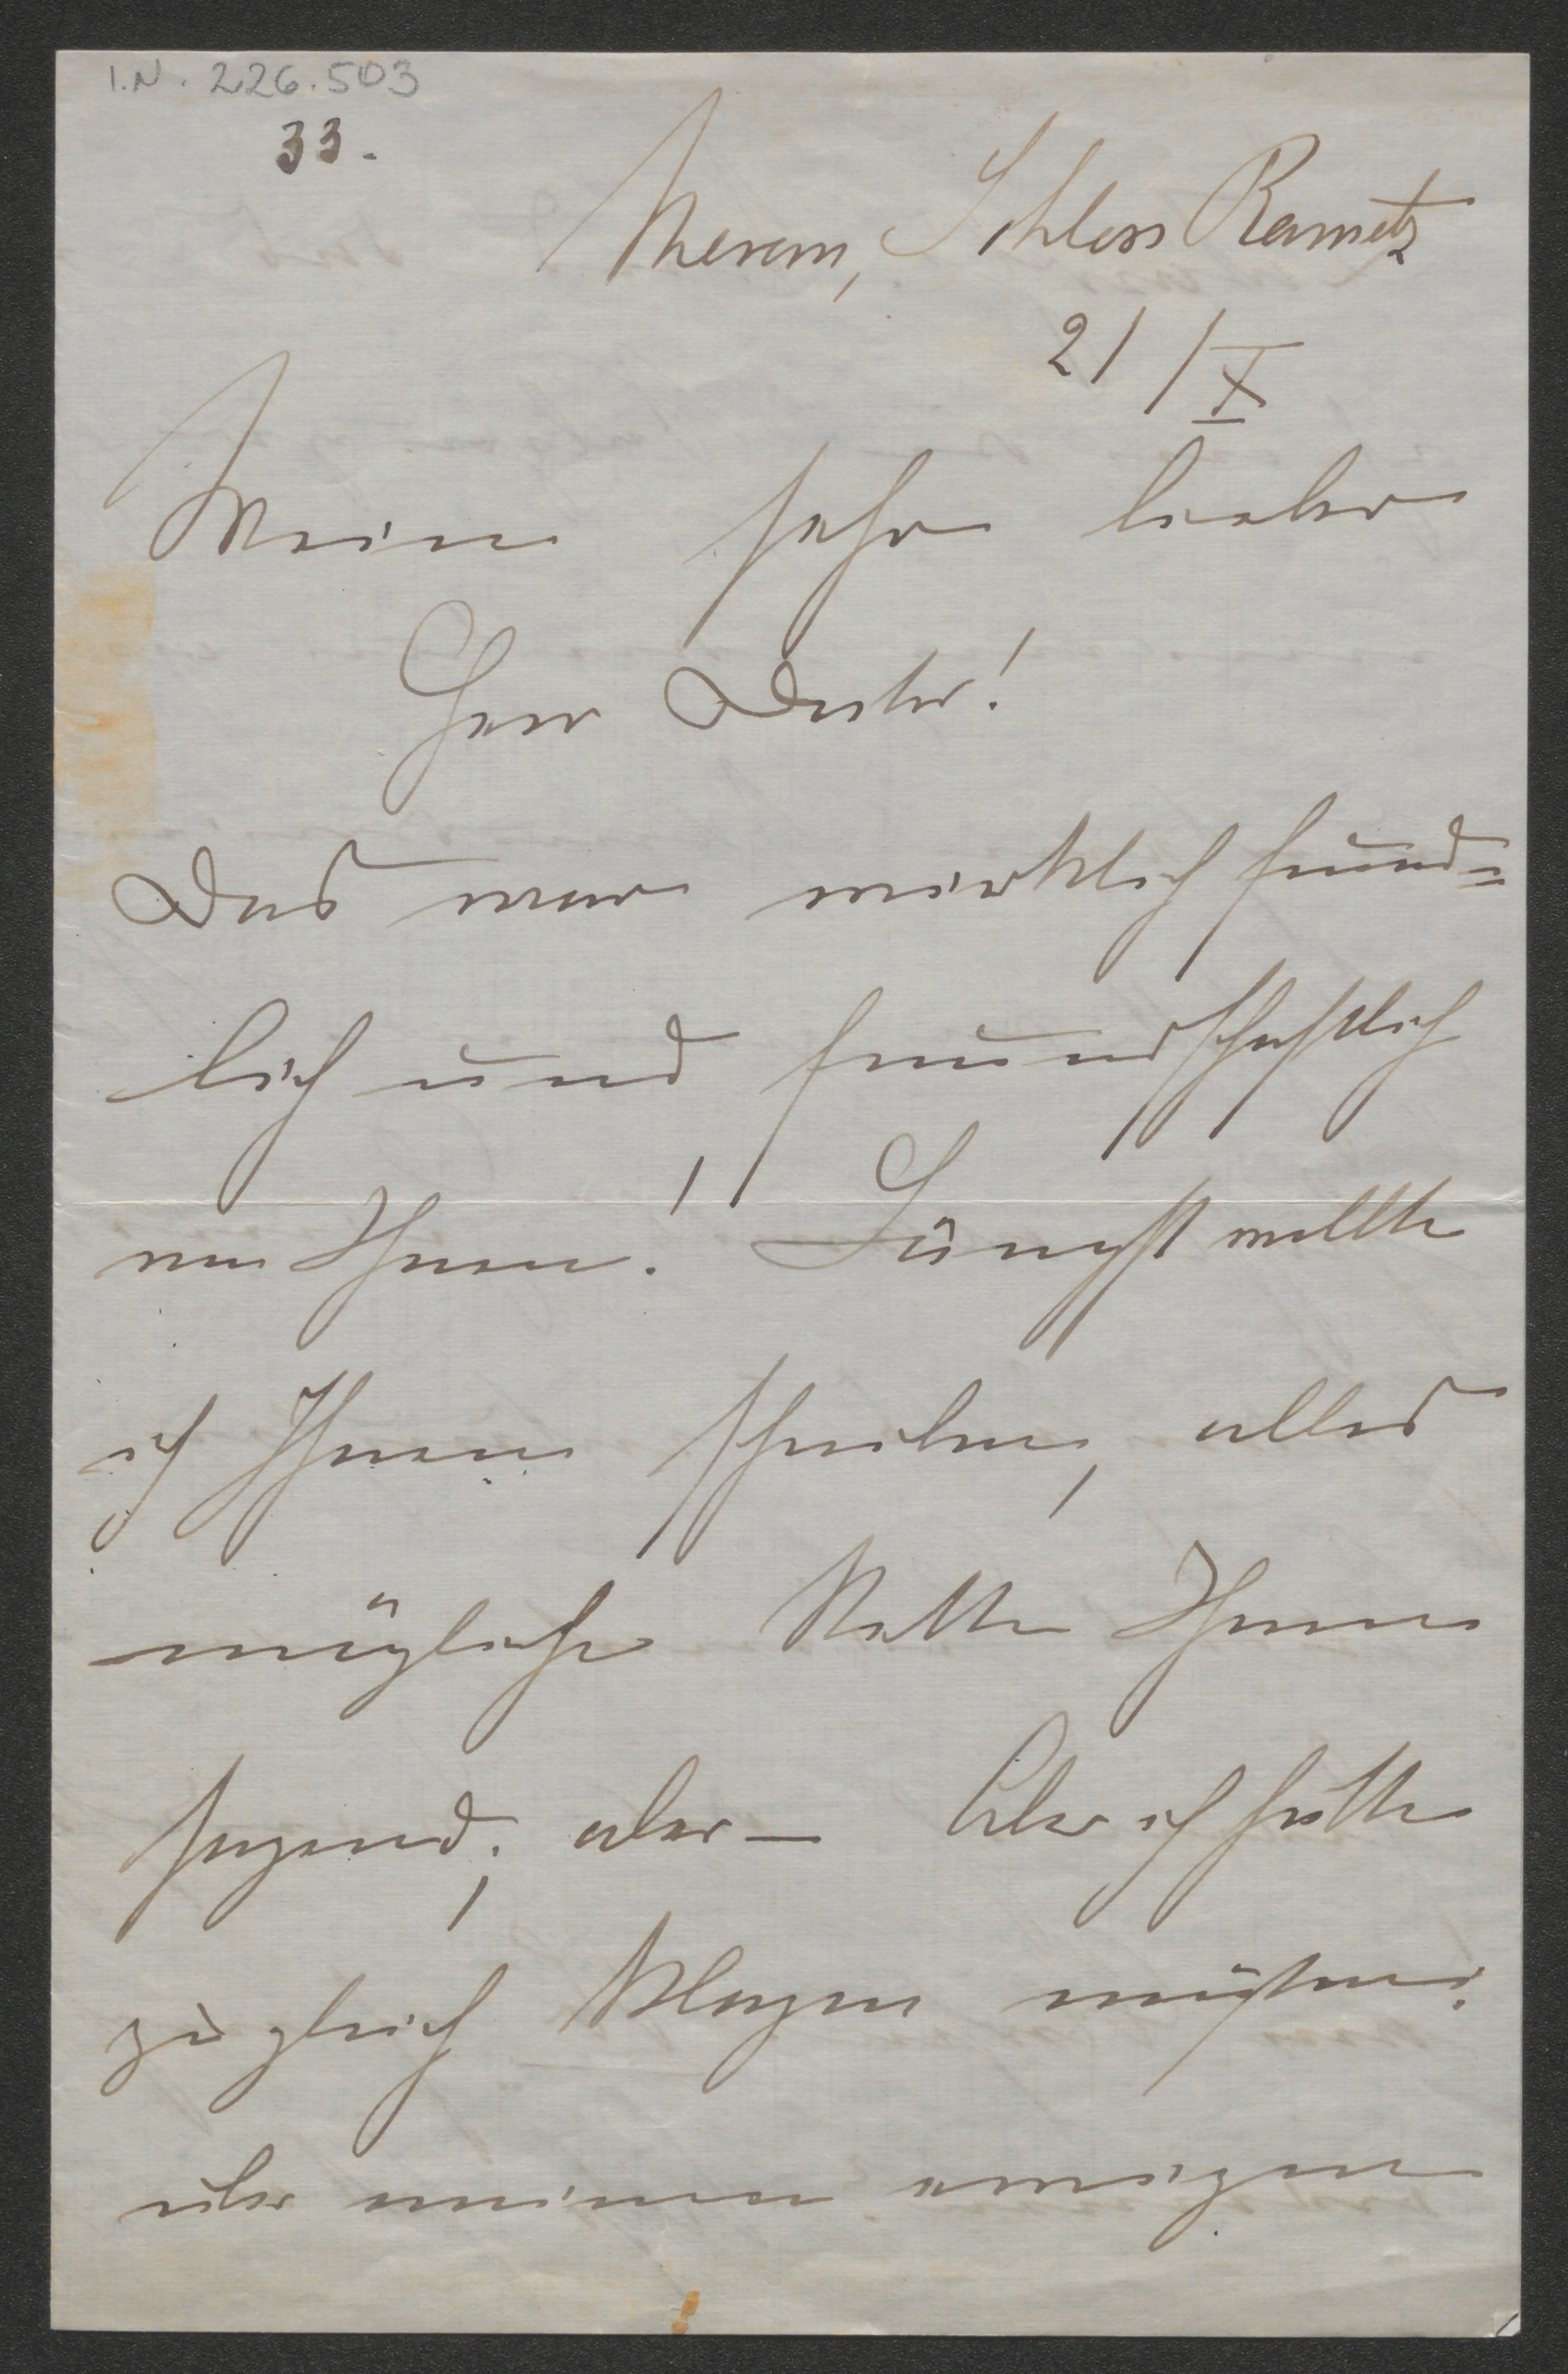 I.N. 226.503
33.
Meran, Schloss Rametz
21/X
Mein sehr lieber
Herr Doctor!
Das war wirklich freund=
lich und freundschaftlich
von Ihnen! Längst wollte
ich Ihnen schreiben, alles
mögliche Nette Ihnen
sagend; aber — Aber ich hätte
zugleich klagen müssen;
über meinen ewigen